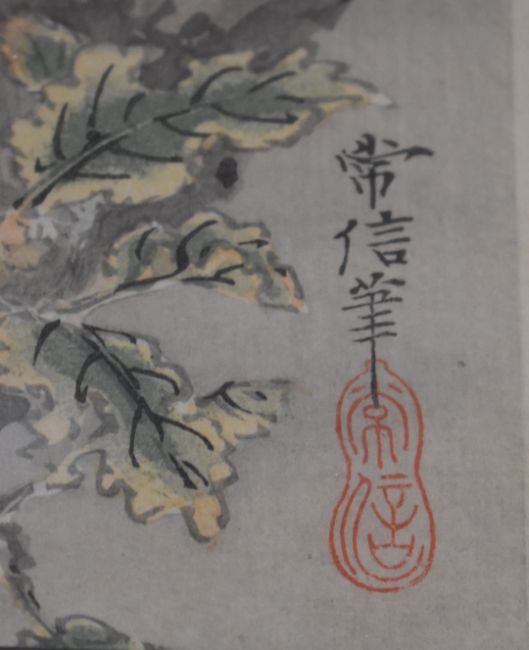 常信筆
常信